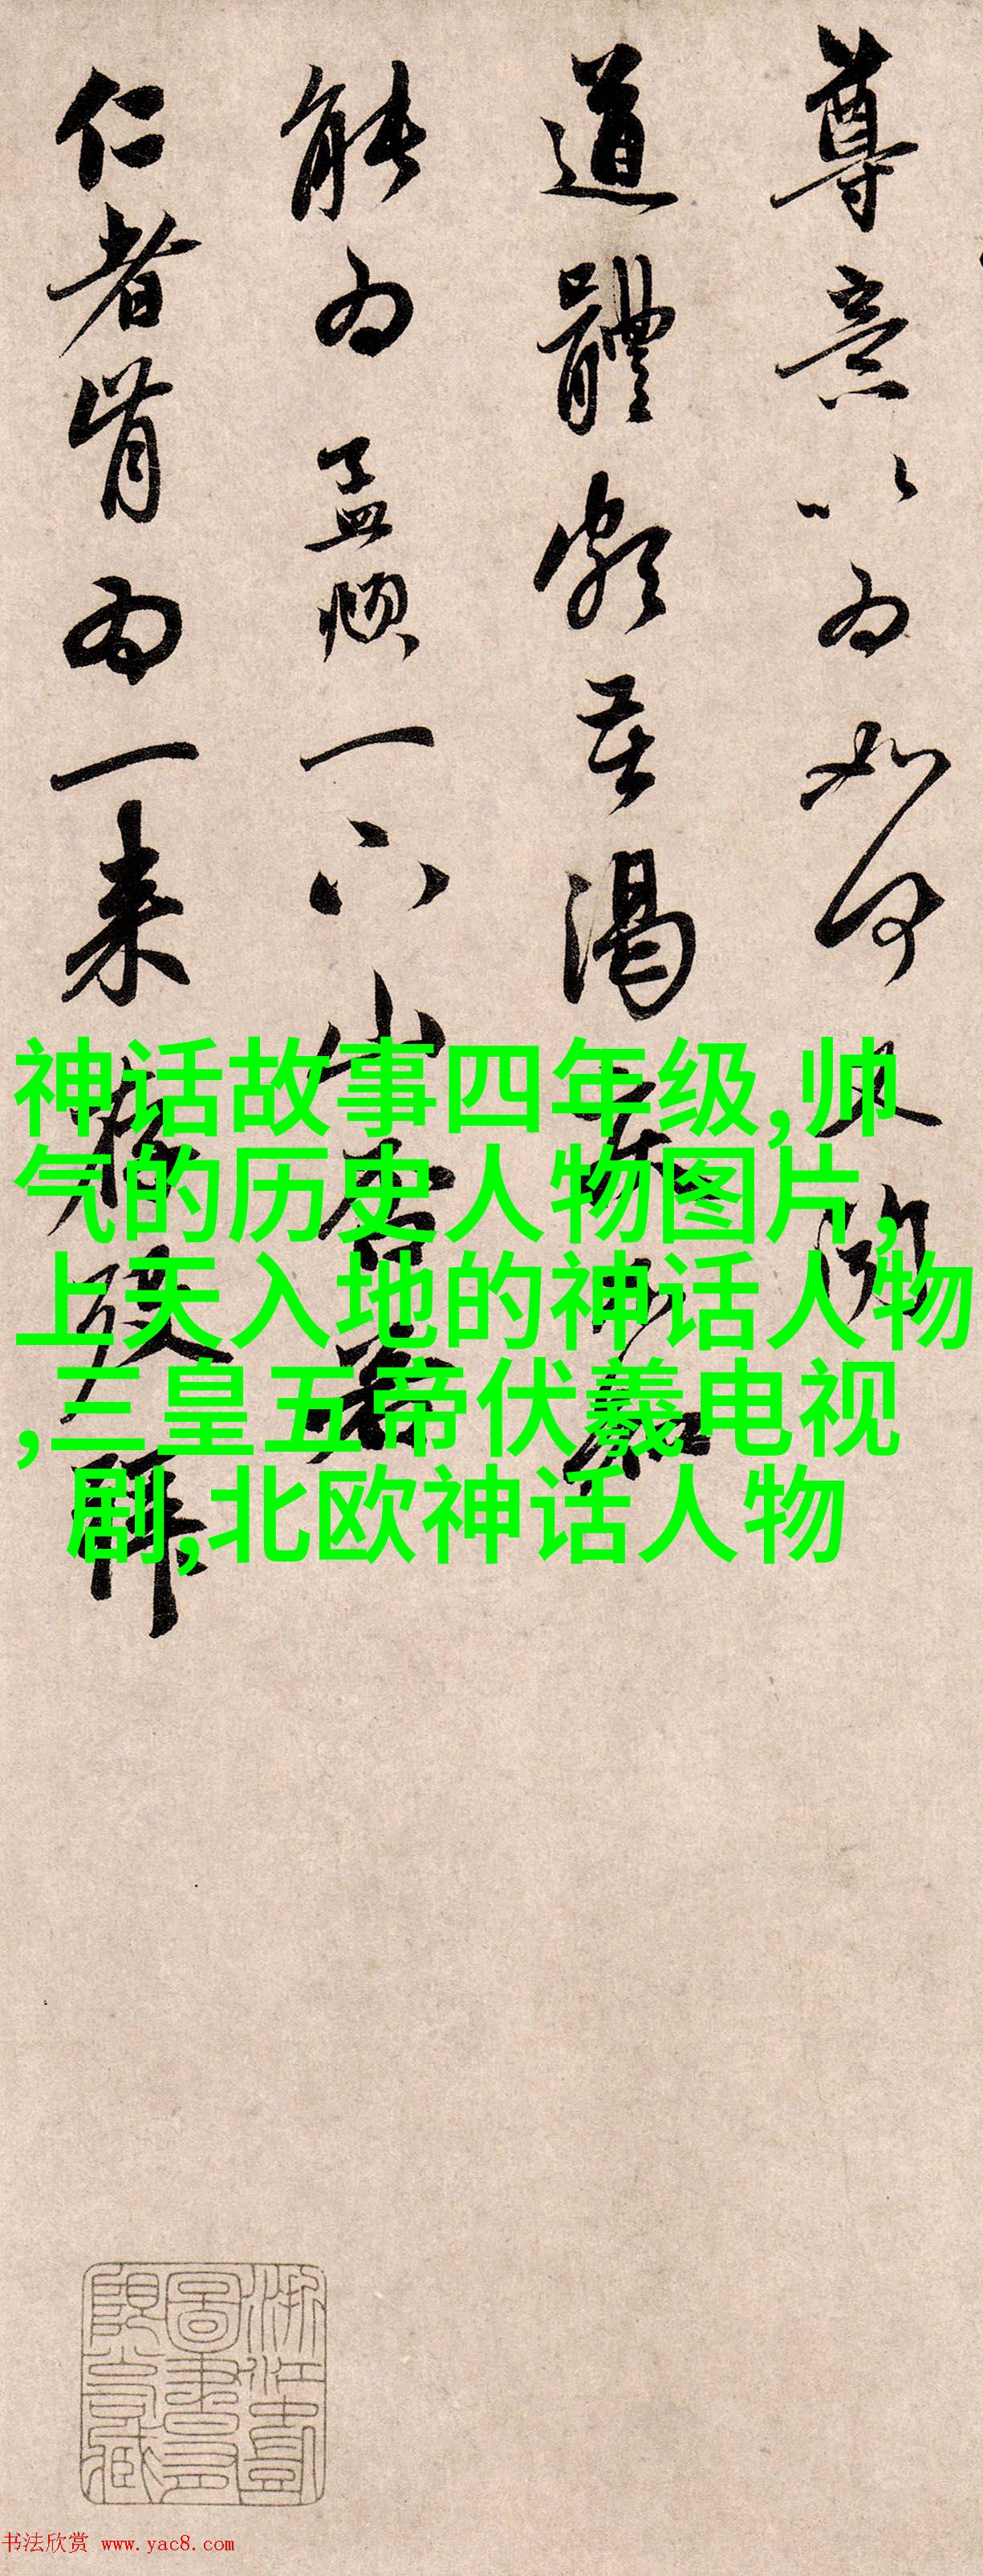 尊意以為如何又
道體頗苦渴
能為孟頫一下山否若
仁者肯為一来
神话故事四年级,帅
气的历史人物图片,
上天入地的神话人物
,三皇五帝伏羲电视
剧,北欧神话人物
书法欣赏 www.yac8.com